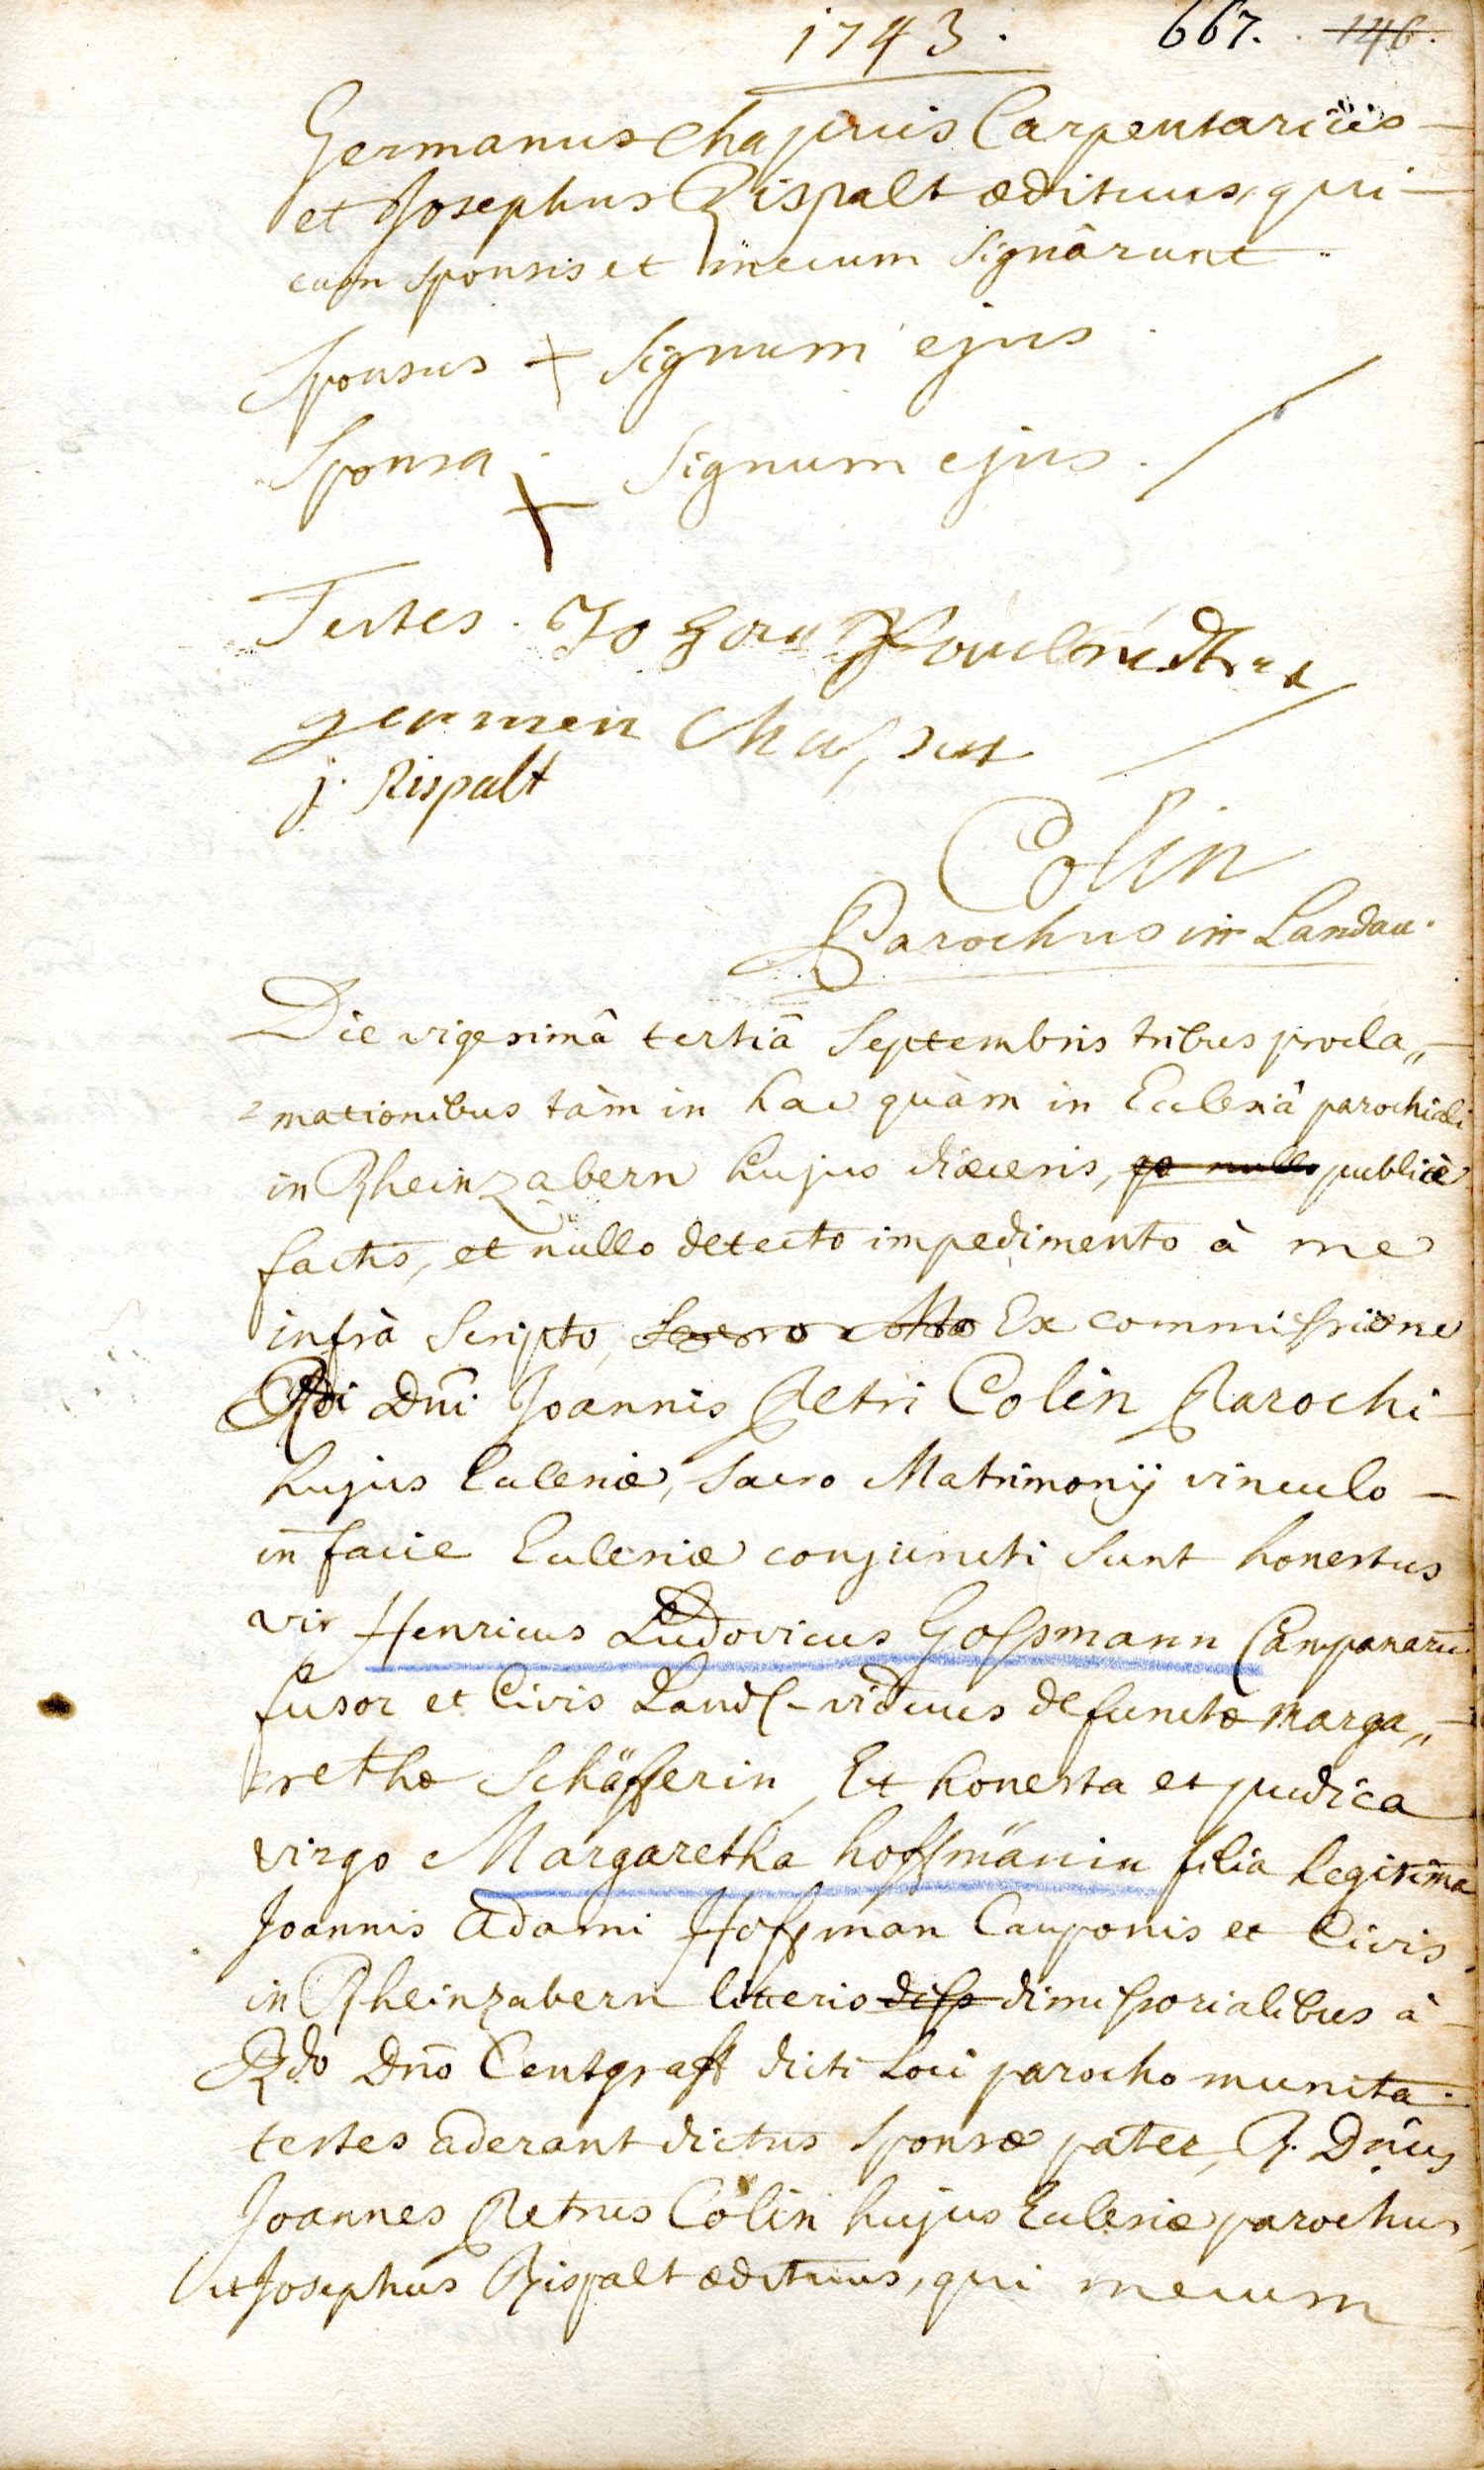 1743. 667. 146.
Germanus Chapuis Carpentarius
et Josephus Rispalt ædituus, qui
cum sponsis et mecum signârunt.
Sponsus + signum ejus
Sponsa + signum ejus.
Testes. Johan
germen Chapui
j. Rispalt
Colin
Parochus in Landau.
Die vigesimâ tertiâ Septembris tribus procla„
mationibus tàm in hac quàm in Ecclesiâ parochiali
in Rheinzabern hujus diæcesis, publicè
factis, et nullo detecto impedimento à me
infrà scripto, Ex commissione
Rdi Dni Joannis Petri Colin Parochi
hujus Ecclesiæ, sacro Matrimonij vinculo
in facie Ecclesiæ conjuncti sunt honestus
vir Henricus Ludovicus Gossmann Campanaru
fusor et Civis Land. viduus defunctæ Marga„
rethæ Schäfferin, Et honesta et pudica
virgo Margaretha hoffmänin filia legitima
Joannis adami Hoffman Cauponis et Civis
in Rheinzabern litteris diss dimissorialibus à
Rdo Dno Centgraff dicti loci parocho munita.
testes aderant dictus sponsæ pater, R. Dnus
Joannes Petrus Colin hujus Ecclesiæ parochus,
et Josephus Rispalt ædituus, qui mecum